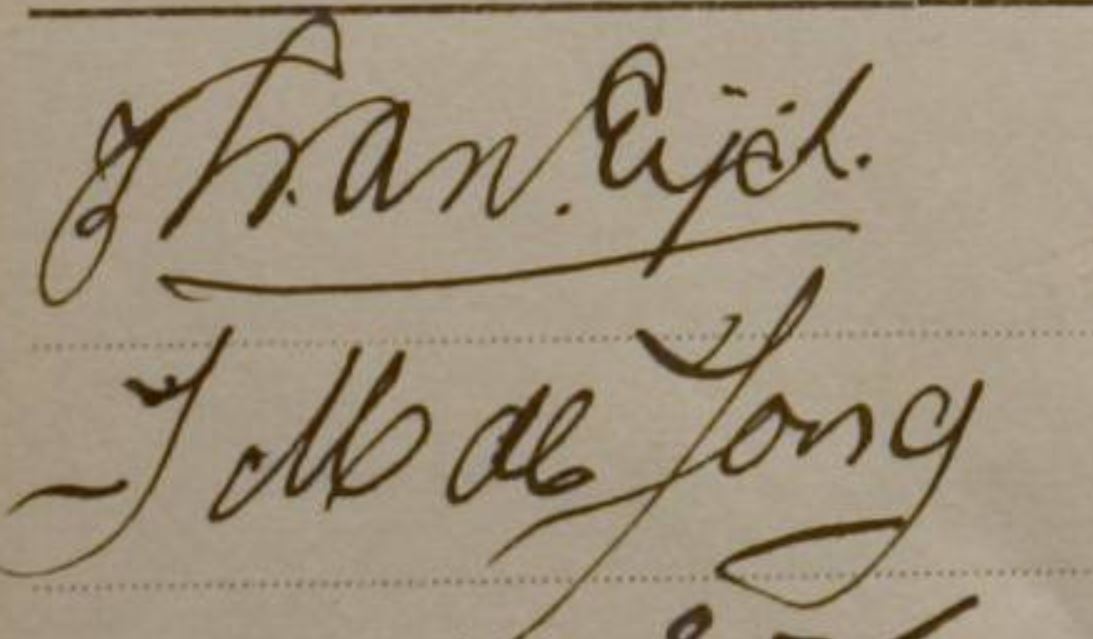 van. Eijck.
J M de Jong